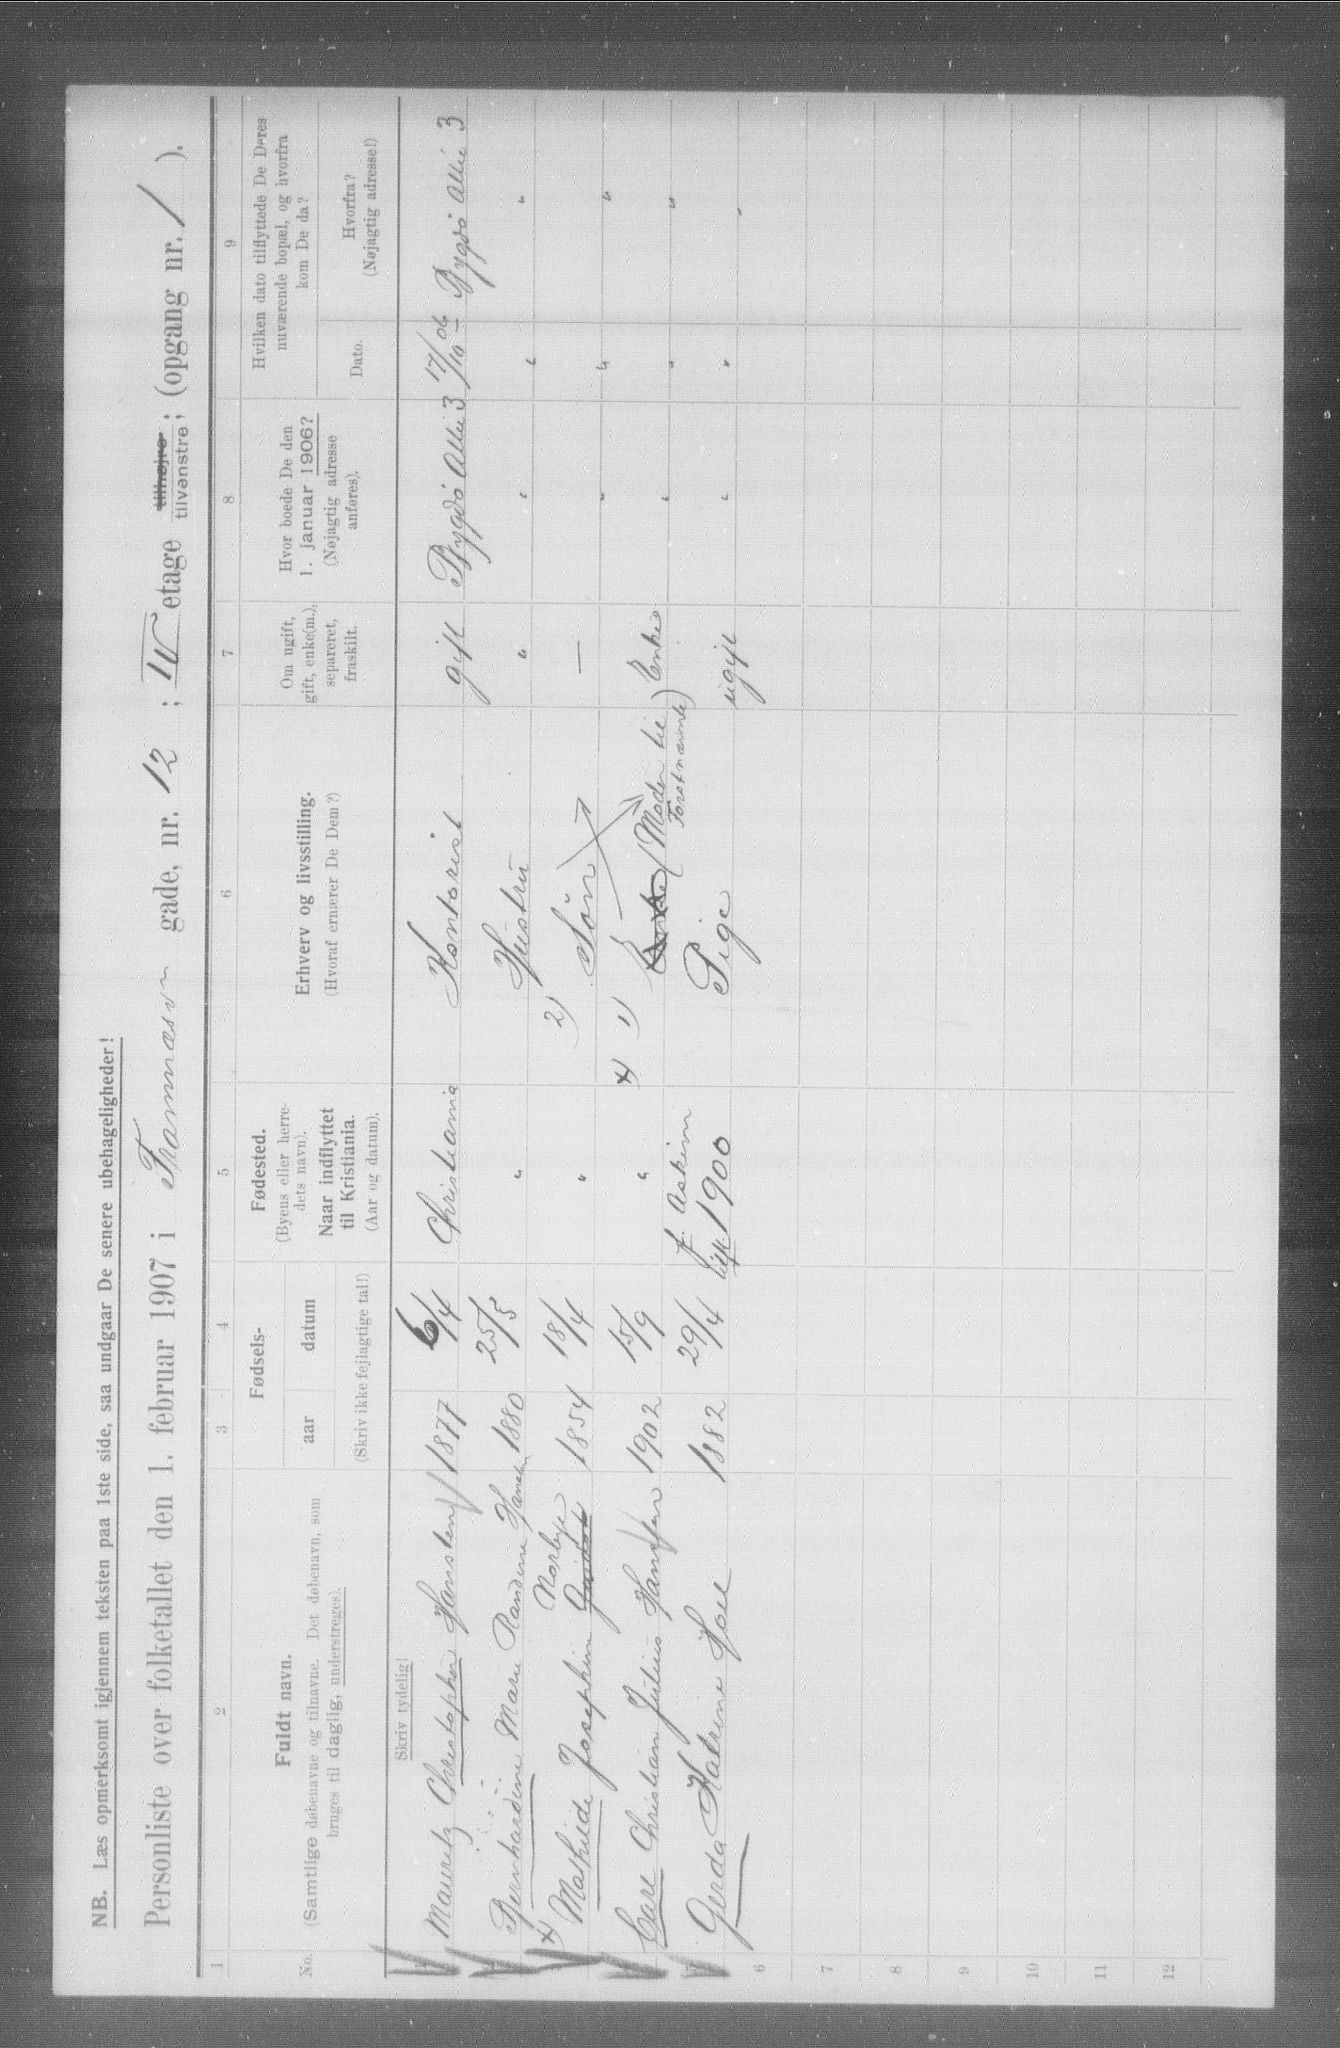 NB. Læs opmerksomt igjennem teksten paa 1ste side, saa undgaar De senere ubehageligheder!
Personliste over folketallet den 1. februar 1907 i Framnæsvn gade, nr. 12 ; IV etage tilhøjre tilvenstre; (opgang nr. / ).
1 2 3 4 5 6 7 8 9
No.
Fuldt navn.
(Samtlige døbenavne og tilnavne. Det døbenavn, som
bruges til daglig, understreges).
Fødsels-
aar datum
(Skriv ikke fejlagtige tal!)
Fødested.
(Byens eller herre-
dets navn).
Naar indflyttet
til Kristiania.
(Aar og datum).
Erhverv og livsstilling.
(Hvoraf ernærer De Dem?)
Om ugift,
gift, enke(m.),
separeret,
fraskilt.
Hvor boede De den
1. januar 1906?
(Nøjagtig adresse
anføres).
Hvilken dato tilflyttede De Deres
nuværende bopæl, og hvorfra
kom De da?
Dato.
Hvorfra?
(Nøjagtig adresse!)
Skriv tydelig!
Mauritz Christopher Hansten 1877 6/4 Christiania Kontorist gift Bygdö Allé 3 17/10 06 Bygdö Allé 3
Bernhardine Marie Randine Hansten 1880 25/5 " Hustru " " " "
x) Mathilde Josephine Norbye 1854 18/4 " 2) Sön — " " "
Carl Christian Julius Hansten 1902 15/9 " x) 1) Enke (Moder til Forstnævnte) Enke " " "
Gerda Katrine Hoel 1882 29/4 f. Askim Pige ugift " " "
1900
6
7
8
9
10
11
12